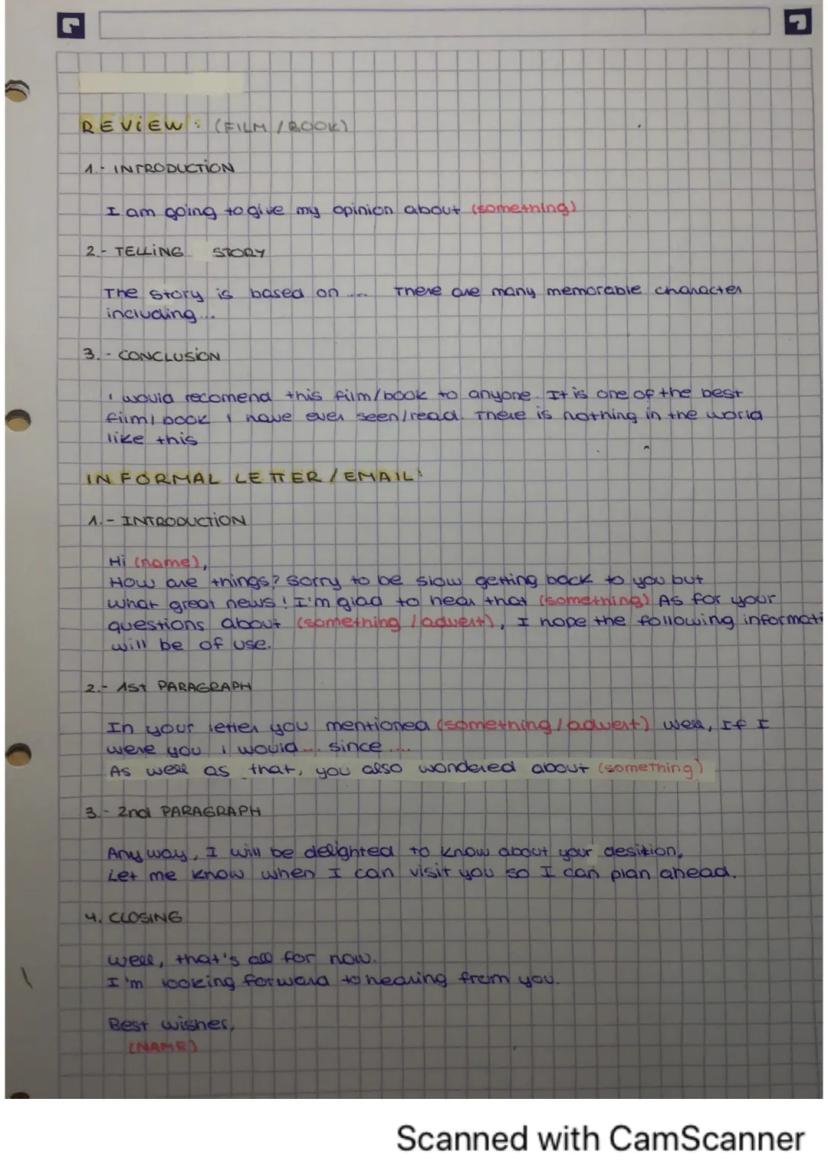 REVIEW: (FILM/BOOK)
1.- INTRODUCTION
I am going to give my opinion about (something)
2.- TELLING STORY
The story is based on ... There are many memorable character
including...
3.- CONCLUSION
I would recomend this film/book to anyone. It is one of the best
film/book I have ever seen/read. There is nothing in the world
like this
INFORMAL LETTER/EMAIL:
1.- INTRODUCTION
Hi (name),
How are things? Sorry to be slow getting back to you but
what great news! I'm glad to hear that (something) As for your
questions about (something/advert), I hope the following informati
will be of use.
2.- 1st PARAGRAPH
In your letter you mentioned (something/advert) well, If I
were you I would ... since ....
As well as that, you also wondered about (something)
3.- 2nd PARAGRAPH
Anyway, I will be delighted to know about your desition.
Let me know when I can visit you so I can plan ahead.
4. CLOSING
Well, that's all for now.
I'm looking forward to hearing from you.
Best wishes,
(NAME)
Scanned with CamScanner